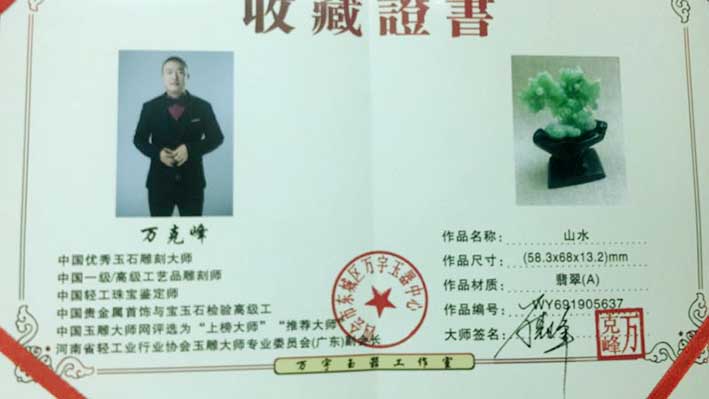 收藏證書
万克峰
中国优秀玉石雕刻大师
中国一级/高级工艺品雕刻师
中国轻工珠宝鉴定师
中国贵金属首饰与宝玉石检验高级工
中国玉雕大师网评选为“上榜大师”“推荐大师
河南省轻工业行业协会玉雕大师专业委员会(广东)副会长
市东城区万字玉器中心
作品名称： 山水
作品尺寸： (58.3x68x13.2)mm
作品材质： 翡翠(A)
作品编号： WY691905637
大师签名： 万克峰
万克峰
万字玉器工作室